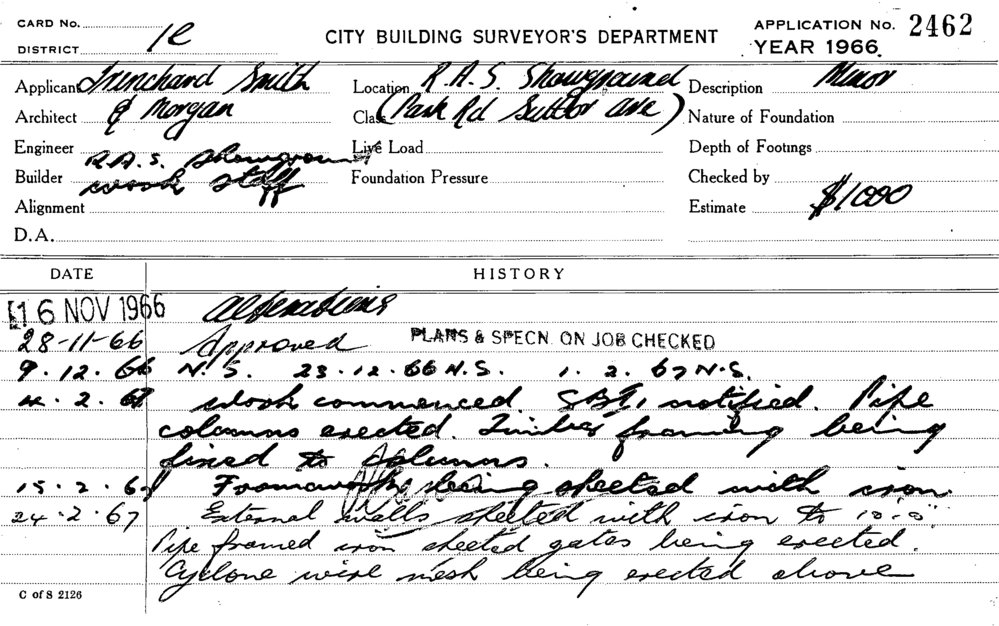 CARD No. APPLICATION No. 2462
DISTRICT CITY BUILDING SURVEYOR'S DEPARTMENT YEAR 1966
Applicant Trenchard Smith Location R.A.S. Showground Description Minor
Architect & Morgan Class (Park Rd Suttor Ave) Nature of Foundation
Engineer R.A.S. Showground Live Load Depth of Footings
Builder work staff Foundation Pressure Checked by
Alignment Estimate $1000
D.A.
DATE HISTORY
16 NOV 1966 Alterations
28-11-66 Approved PLANS & SPECN. ON JOB CHECKED
9.12.66 N.S. 23.12.66 N.S. 1.2.67 N.S.
4.2.67 Work commenced. notified. Pipe
columns erected. Timber framing being
fixed to columns.
15.2.67 Framework being sheeted with iron.
24.2.67 External walls sheeted with iron to 10'.0"
Pipe framed iron sheeted gates being erected.
Cyclone wire mesh being erected above
C of S 2126